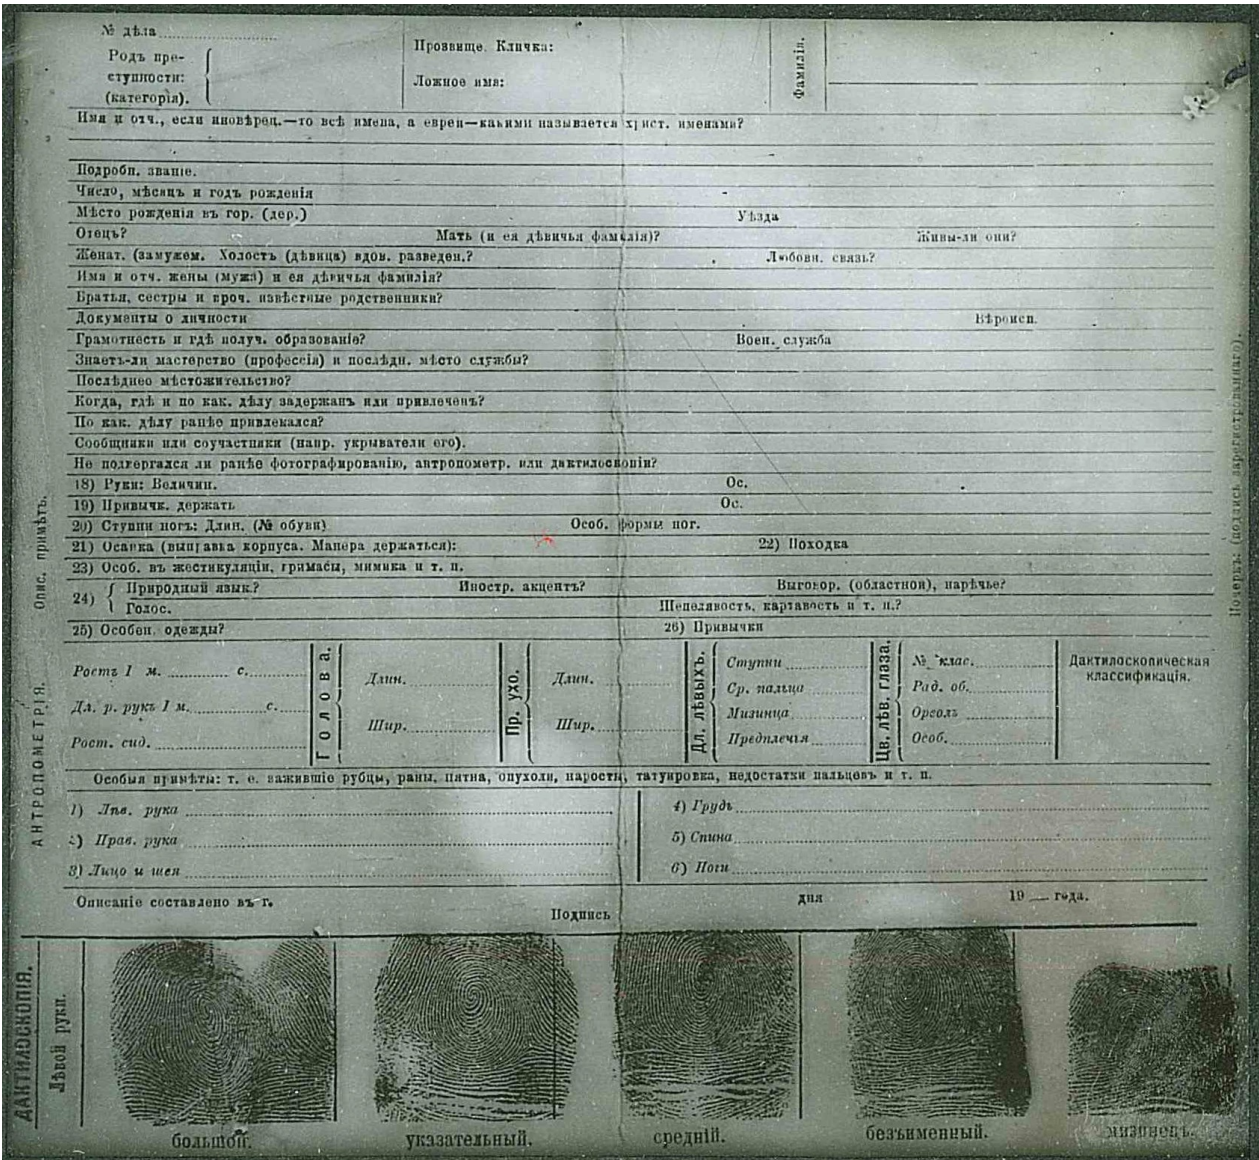 № дѣла
Родъ пре-
ступности:
(категорія).
Прозвище. Кличка:
Ложное имя:
Фамилія.
Имя и отч., если иновѣрец.—то всѣ имена, а евреи—какими называется христ. именами?
Подробн. званіе.
Число, мѣсяцъ и годъ рожденія
Мѣсто рожденія въ гор. (дер.) Уѣзда
Отецъ? Мать (и ея дѣвичья фамилія)? Живы-ли они?
Женат. (замужем. Холость (дѣвица) вдов. разведен.? Любовн. связь?
Имя и отч. жены (мужа) и ея дѣвичья фамилія?
Братья, сестры и проч. извѣстные родственники?
Документы о личности Вѣроисп.
Грамотность и гдѣ получ. образованіе? Воен. служба
Знаетъ-ли мастерство (профессія) и послѣдн. мѣсто службы?
Послѣднео мѣстожительство?
Когда, гдѣ и по как. дѣлу задержанъ или привлеченъ?
По как. дѣлу ранѣе привлекался?
Сообщники или соучастники (напр. укрыватели его).
Не подвергался ли ранѣе фотографированію, антропометр. или дактилоскопіи?
18) Руки: Величин. Ос.
19) Привычк. держать Ос.
20) Ступни ногъ: Длин. (№ обуви) Особ. формы ног.
21) Осанка (выправка корпуса. Манера держаться): 22) Походка
23) Особ. въ жестикуляціи, гримасы, мимика и т. п.
24) Природный язык.? Иностр. акцентъ? Выговор. (областной), нарѣчье?
Голос. Шепелявость, картавость и т. п.?
25) Особен. одежды? 26) Привычки
Опис. примѣтъ.
АНТРОПОМЕТРІЯ.
Ростъ 1 м. с.
Дл. р. рукъ 1 м. с.
Рост. сид.
Голова.
Длин.
Шир.
Пр. ухо.
Длин.
Шир.
Дл. лѣвыхъ.
Ступни
Ср. пальца
Мизинца
Предплечія
Цв. лѣв. глаза.
№ клас.
Рад. об.
Ореолъ
Особ.
Дактилоскопическая
классификація.
Почеркъ: (подпись зарегистрированнаго).
Особыя примѣты: т. е. зажившіе рубцы, раны, пятна, опухоли, нарости, татуировка, недостатки пальцевъ и т. п.
1) Лѣв. рука 4) Грудь
2) Прав. рука 5) Спина
3) Лицо и шея 6) Ноги
Описаніе составлено въ г. дня 19 года.
Подпись
ДАКТИЛОСКОПІЯ.
Лѣвой руки.
большой. указательный. средній. безъименный. мизинецъ.